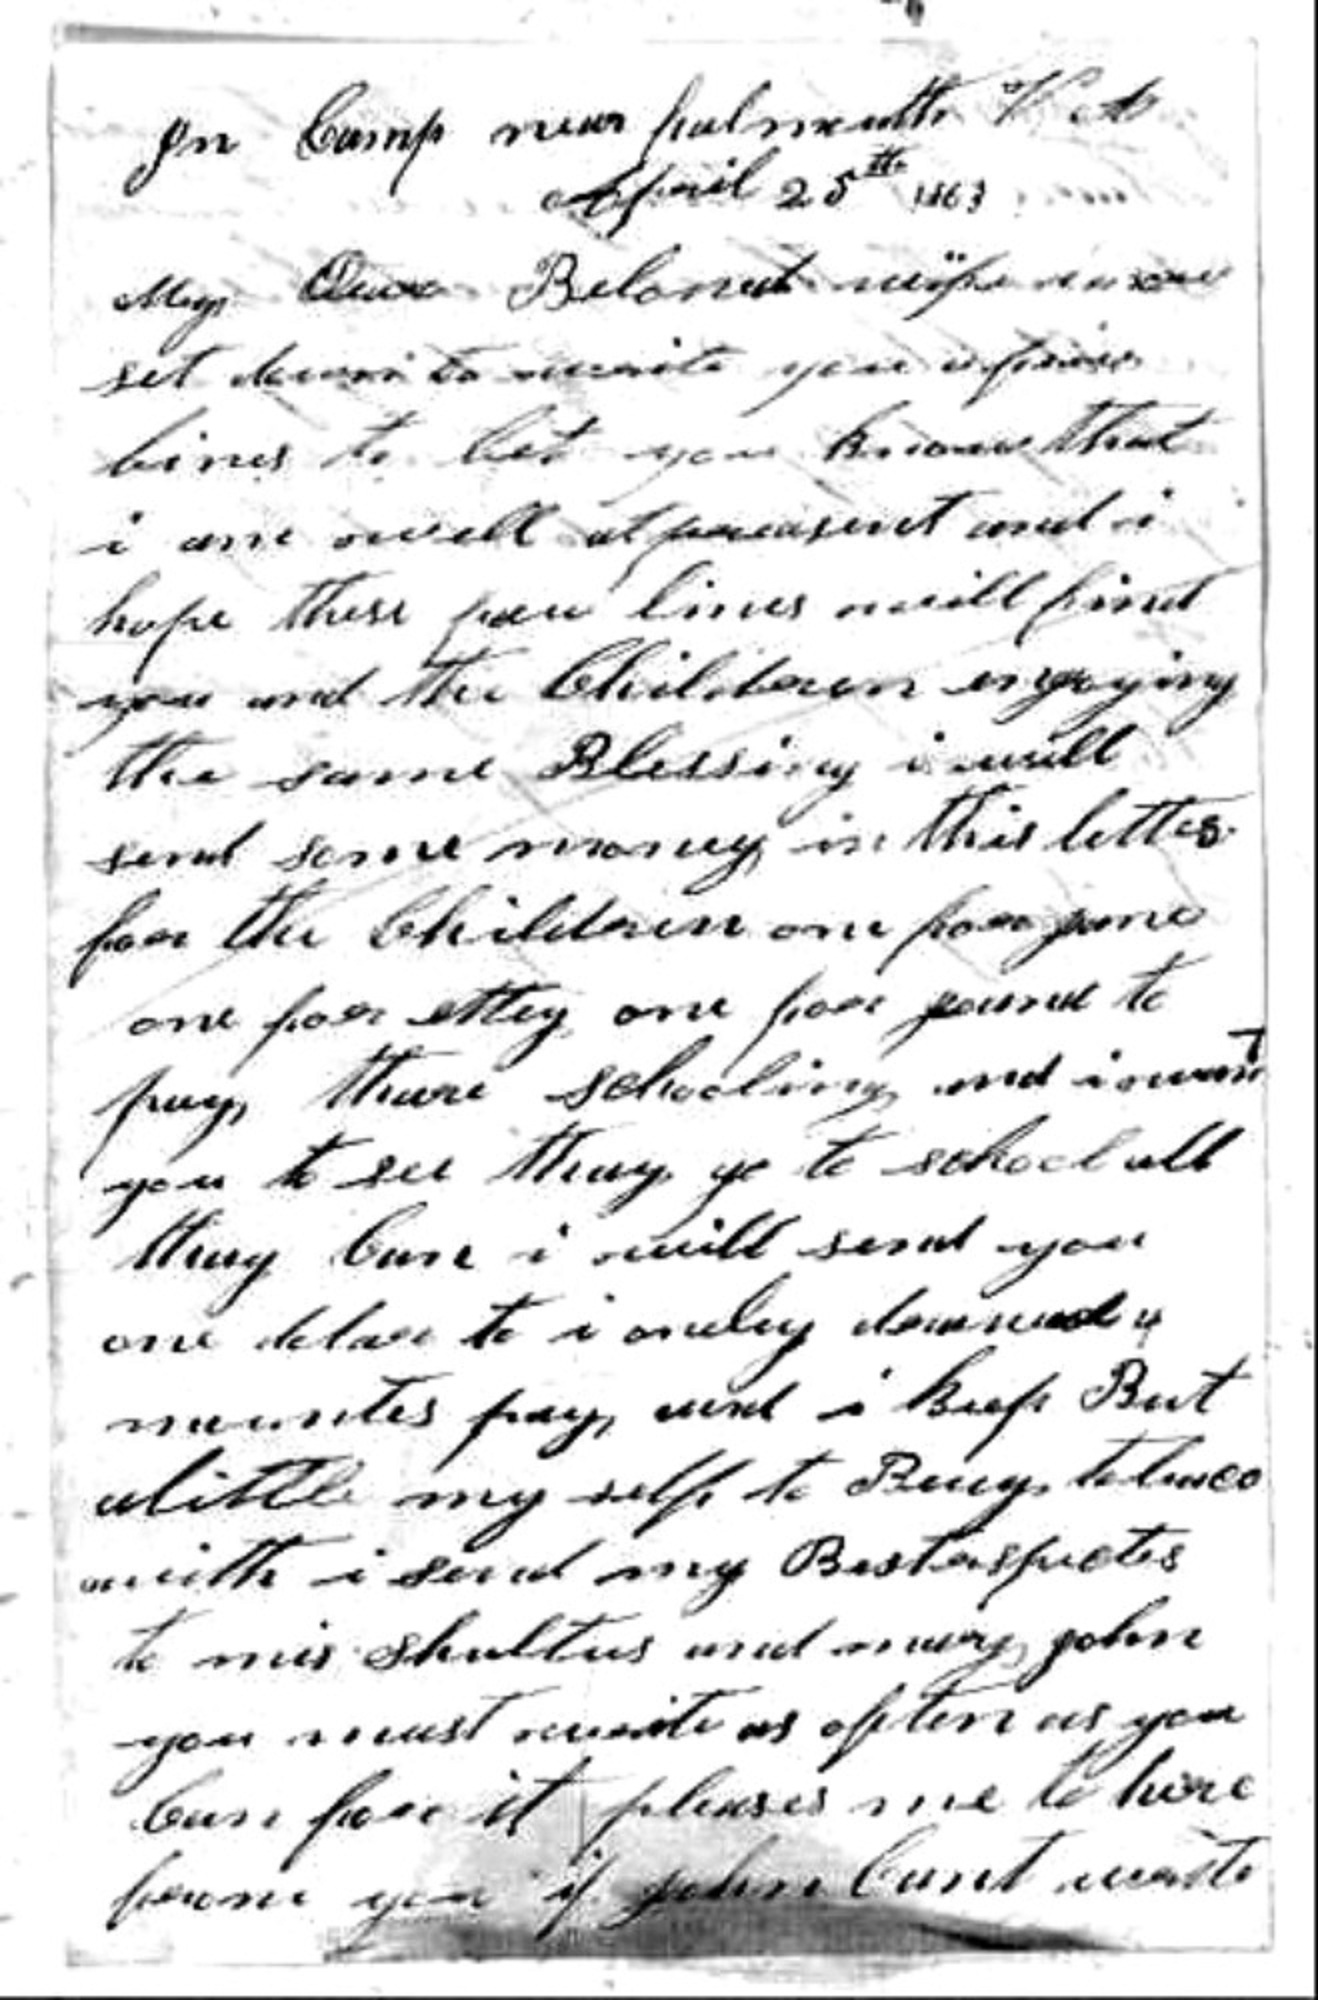 In Camp near falmouth V A
April 25th 1863
My Dear Beloved wife i now
set down to write you a fview
lines to let you know that
i am well at preasent and i
hope these few lines will find
you and the Childeren enjoying
the same Blessing i will
send some money in this letter
for the Children one for jane
one for ettey one for
pay thare schooling and i want
you to see thay go to school all
thay Can i will send you
one doler to i onley drawed 4
muntes pay and i keep But
alittle my self to Buy tobaco
with i send my Best respectes
to mis Shultus and mary john
you must write as often as you
Can for it pleases me to here
frome you if john Cant write